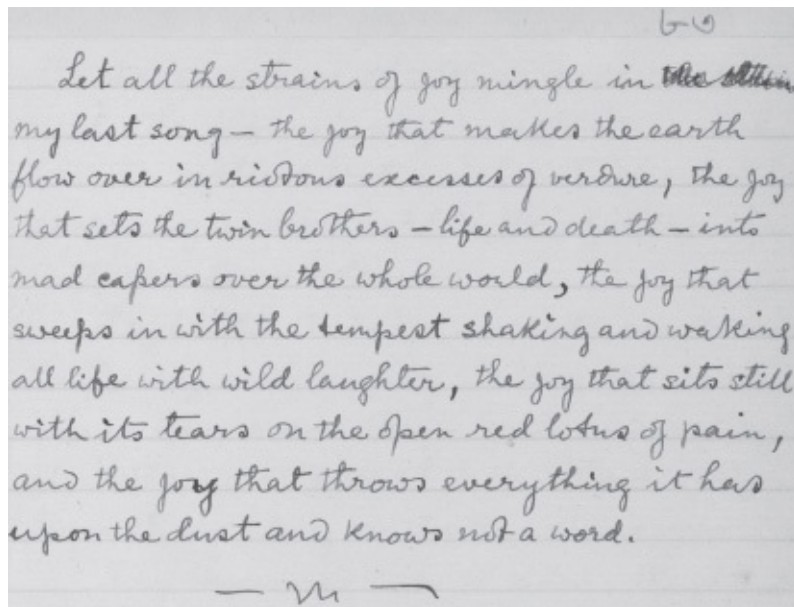 ৮৩
Let all the strains of joy mingle in
my last song — the joy that makes the earth
flow over in riotous excesses of verdure, the joy
that sets the twin brothers — life and death — into
mad capers over the whole world, the joy that
sweeps in with the tempest shaking and waking
all life with wild laughter, the joy that sits still
with its tears on the open red lotus of pain,
and the joy that throws everything it has
upon the dust and knows not a word.